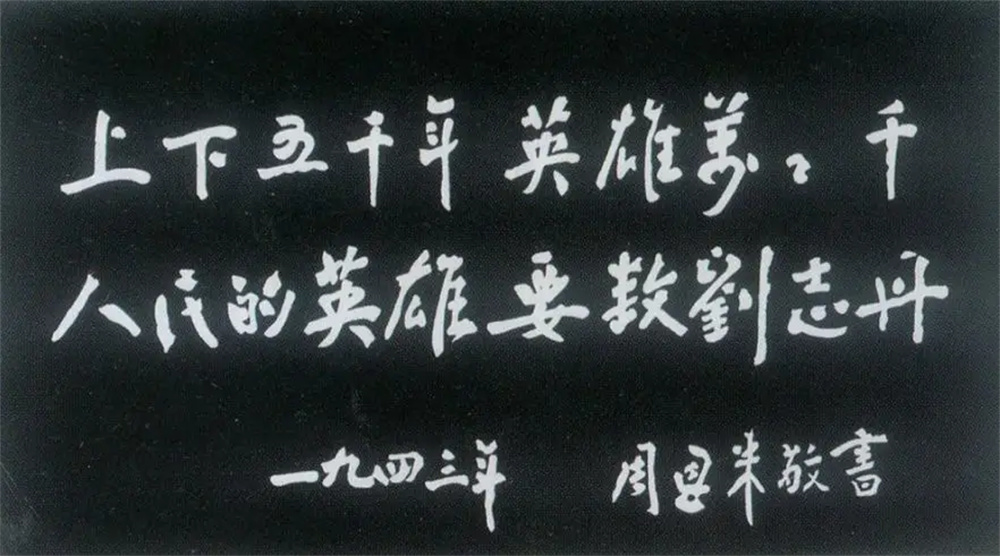 上下五千年 英雄萬〻千
人民的英雄要数劉志丹
一九四三年 周恩来敬書